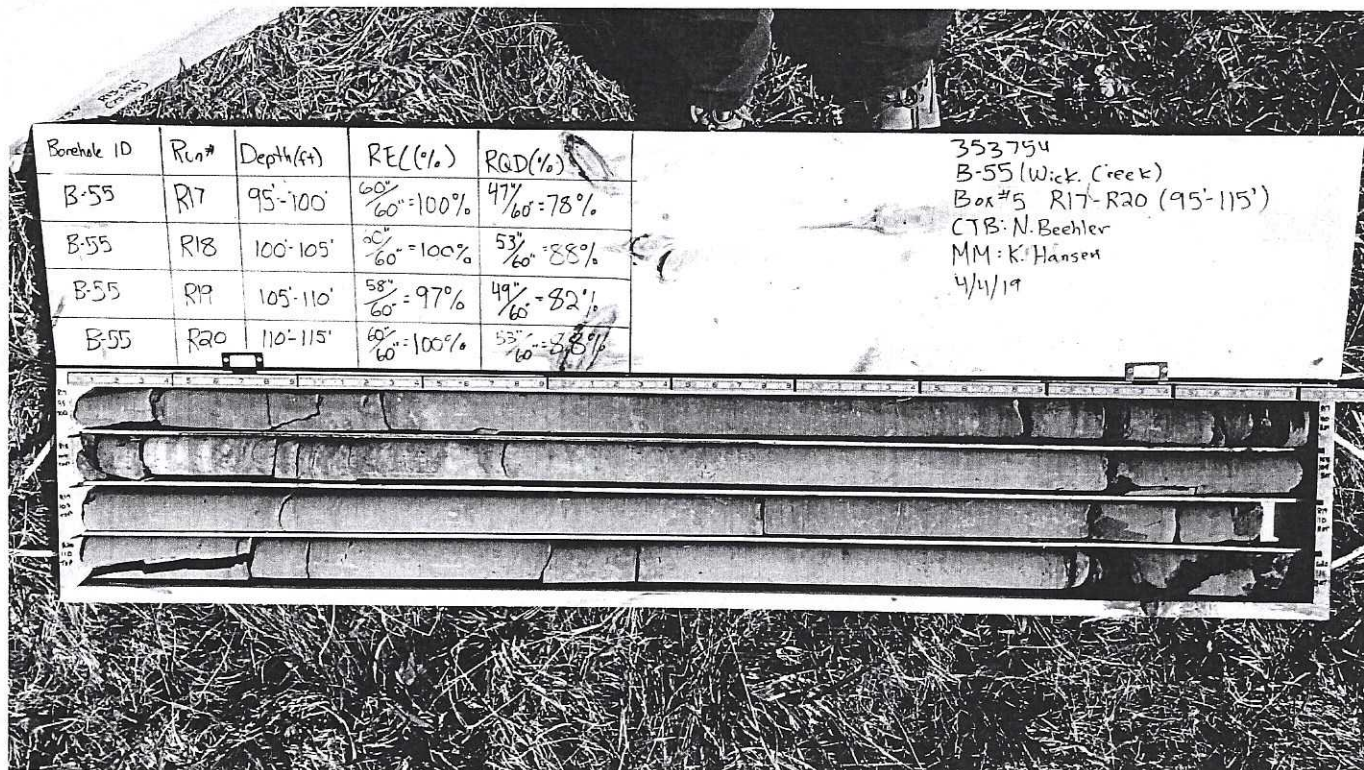 Borehole ID Run# Depth(ft) REC(%) RQD(%)
B-55 R17 95'-100' 60"/60"=100% 47"/60"=78%
B-55 R18 100'-105' 60"/60"=100% 53"/60"=88%
B-55 R19 105'-110' 58"/60"=97% 49"/60"=82%
B-55 R20 110'-115' 60"/60"=100% 53"/60"=88%
353754
B-55 (Wick. Creek)
Box#5 R17-R20 (95'-115')
CTB: N. Beehler
MM: K. Hansen
4/4/19